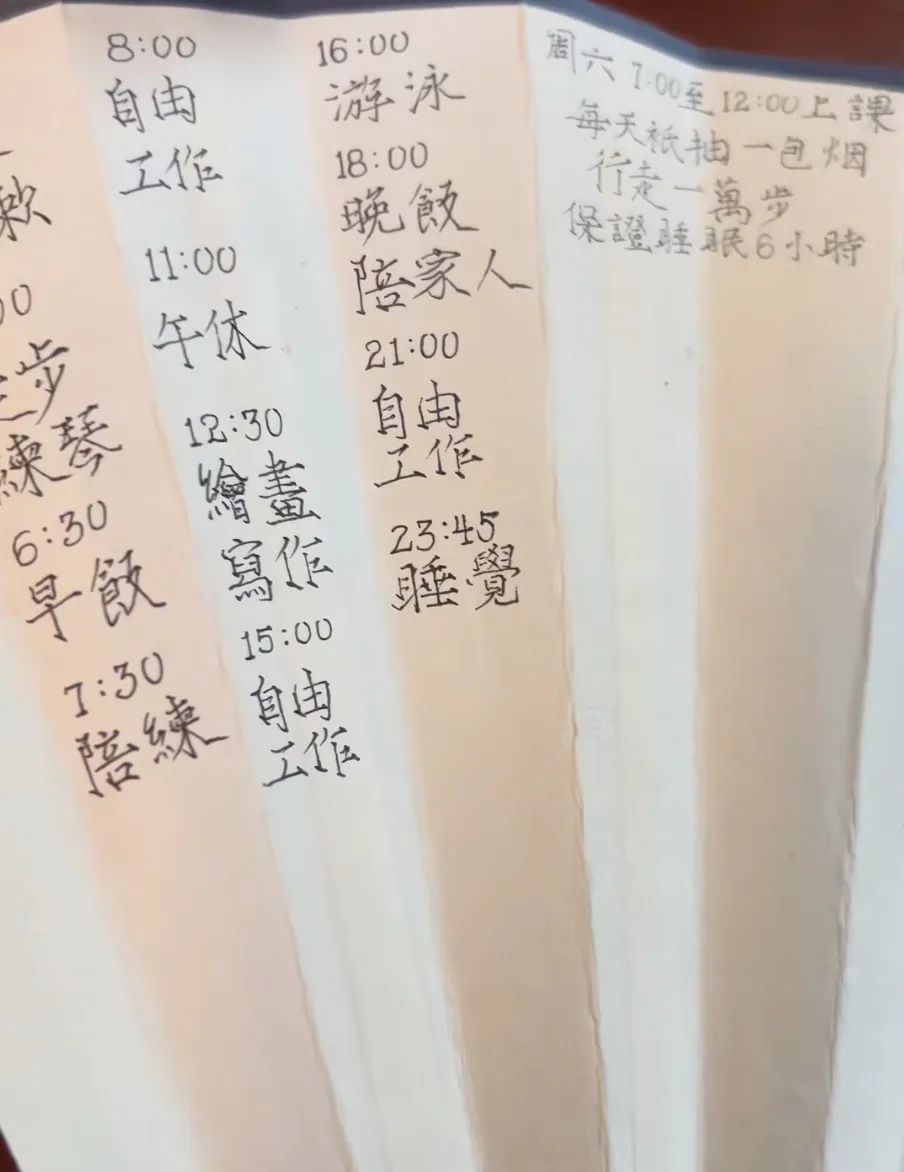 步
練琴
6:30
早飯
7:30
陪練
8:00
自由
工作
11:00
午休
12:30
繪畫
寫作
15:00
自由
工作
16:00
游泳
18:00
晚飯
陪家人
21:00
自由
工作
23:45
睡覺
周六 7:00至12:00上課
每天衹抽一包烟
行走一萬步
保證睡眠6小時